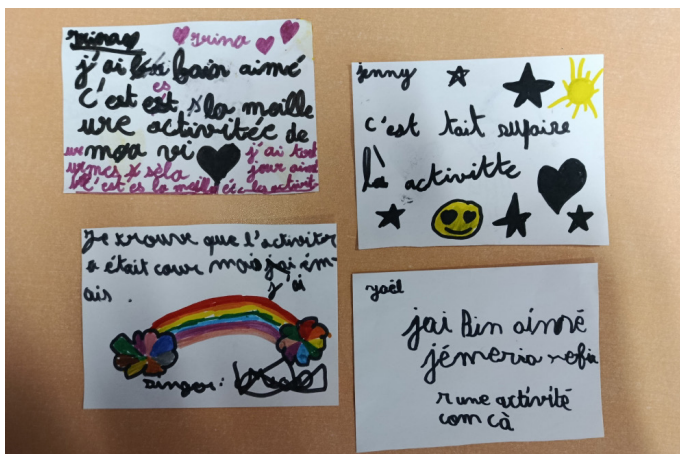 irina irina
j'ai bain aimé
es
c'est est la maille
ure activitée de
moa vi
j'ai tout
jour aimé
c'est es la maille
jenny
c'est tait supaire
là activitte
Je trouve que l'activiter
a était cour mais j'ai ém-
j'ai
ais .
singer :
yaël
jai Bin aimé
jémeria refai
r une activité
com çà